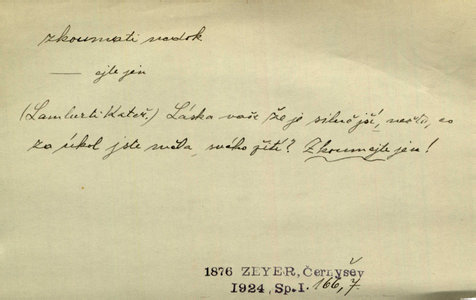 zkoumati nedok
—— ejte jen
(Lamberti Kateř.) Láska vaše že je silnější, nežli, co
za úkol jste měla, svého žití? Zkoumejte jen!
1876 ZEYER, Černyšev
1924, Sp. I. 166, 7.